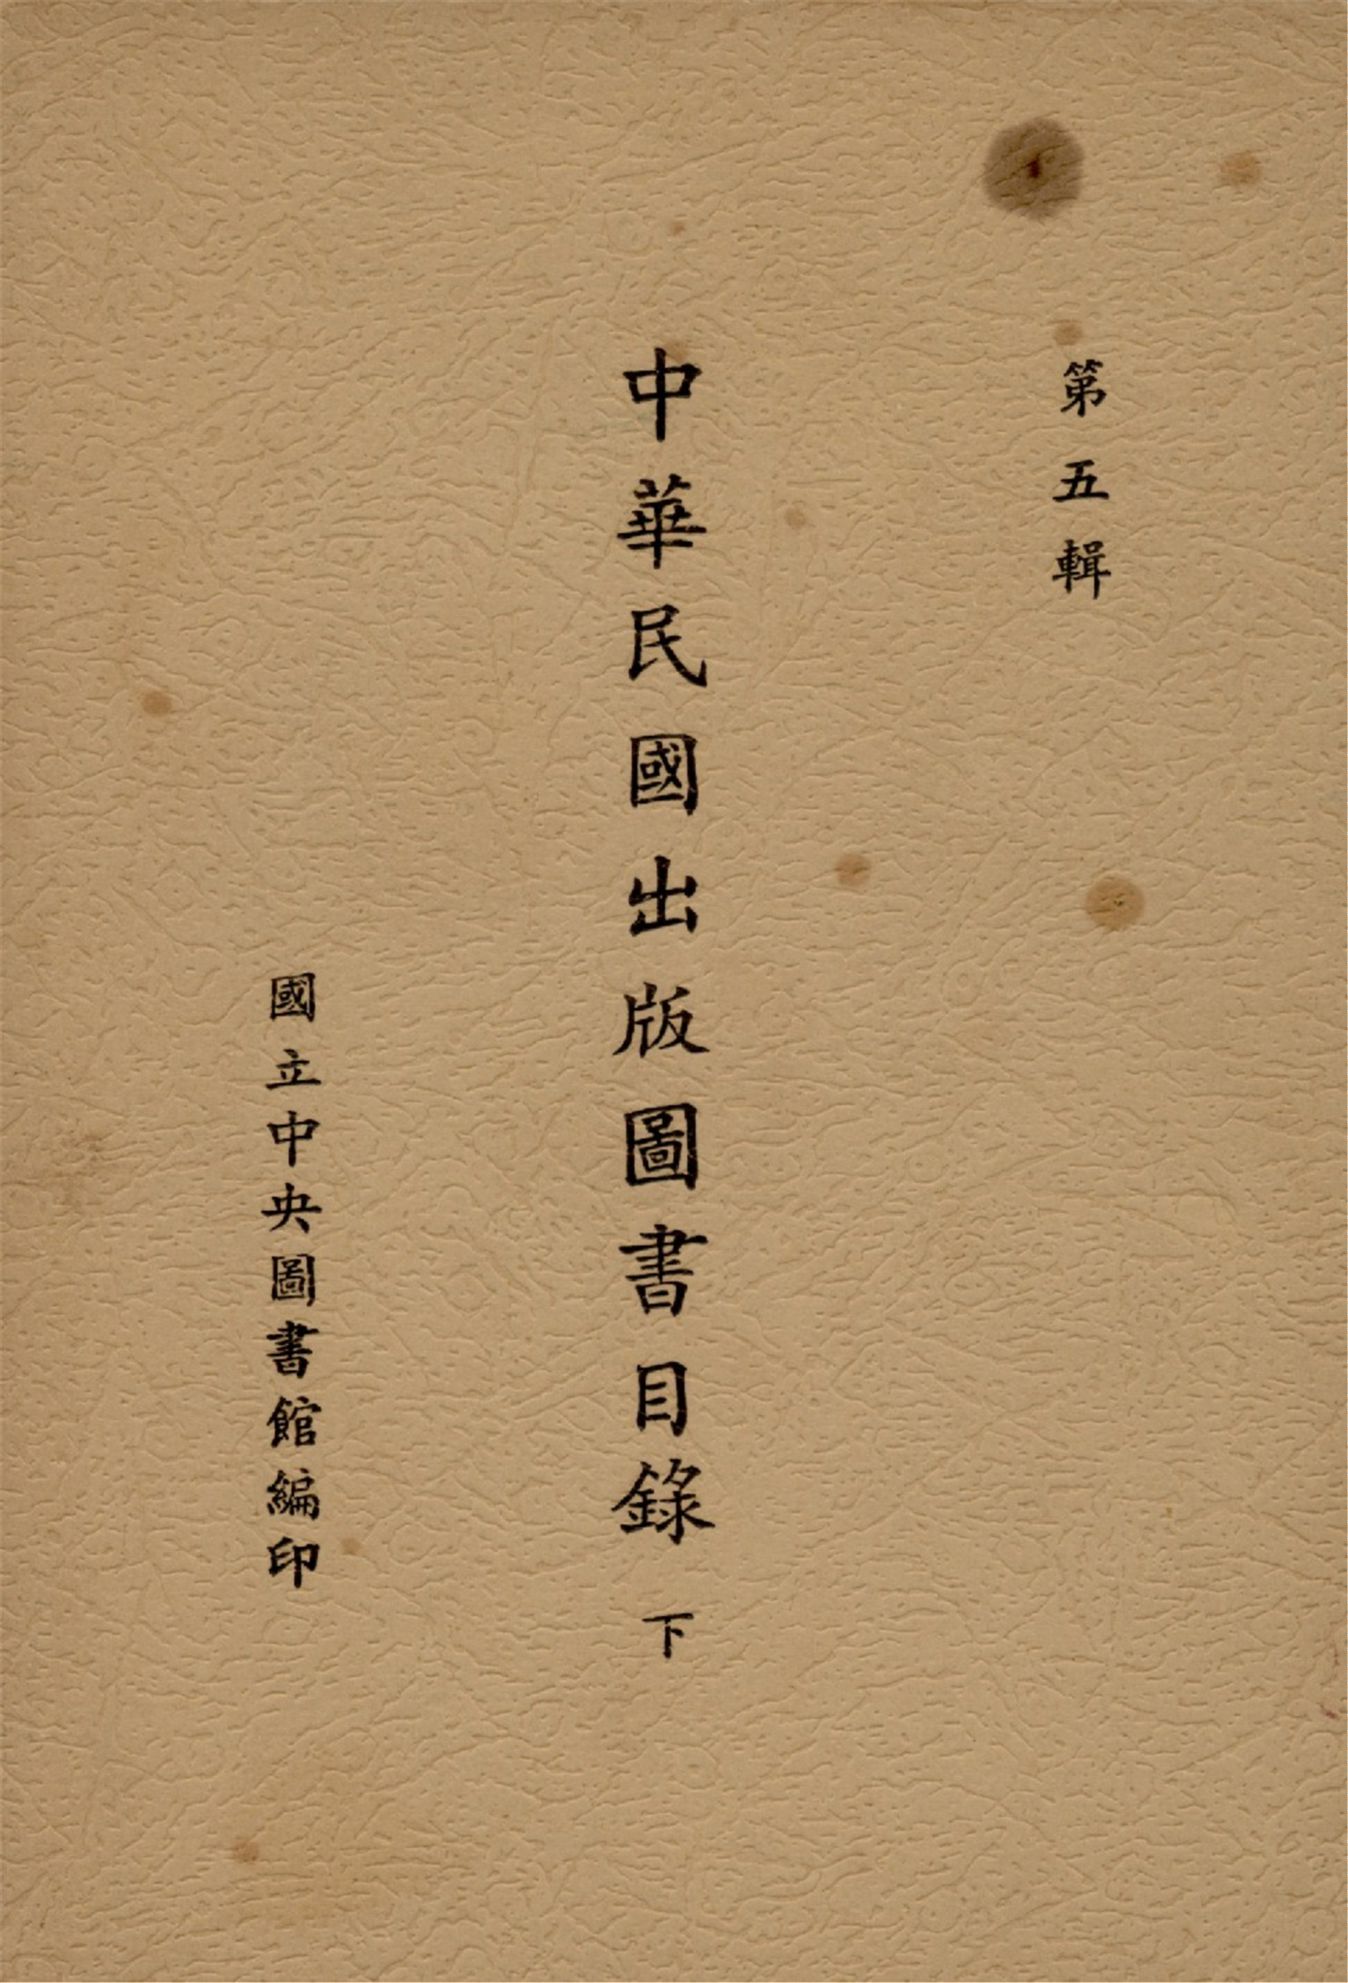 第五輯
中華民國出版圖書目錄 下
國立中央圖書館編印